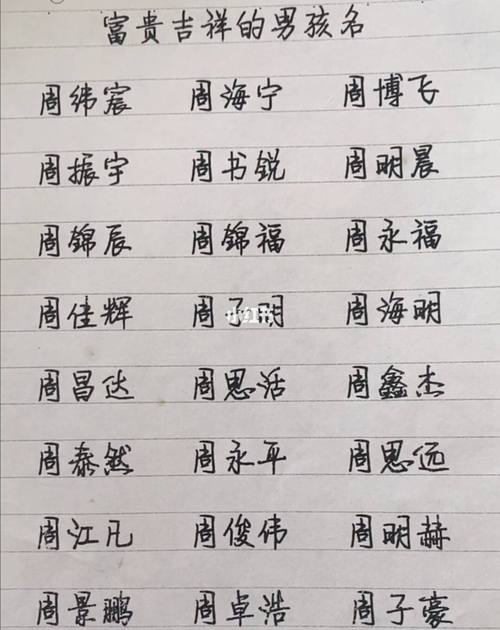 富贵吉祥的男孩名
周纬宸 周海宁 周博飞
周振宇 周书锐 周明晨
周锦辰 周锦福 周永福
周佳辉 周子明 周海明
周昌达 周思活 周鑫杰
周泰然 周永平 周思远
周江凡 周俊伟 周明赫
周景鹏 周卓浩 周子豪